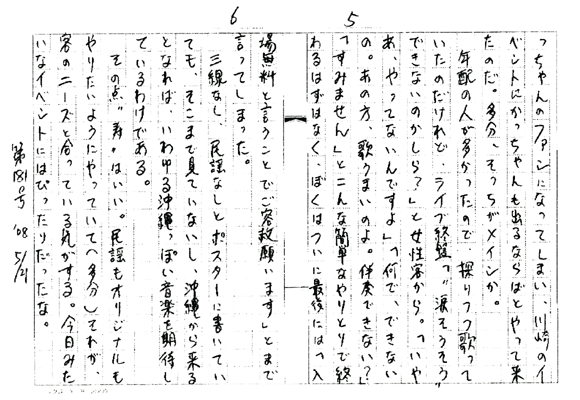 5
っちゃんのファンになってしまい、川崎のイ
ベントにかっちゃんも出るならばとやって来
たのだ。多分、そっちがメインか。
年配の人が多かったので、探りつつ歌って
いたのだけれど、ライブ終盤、"涙そうそう"
できないのかしら?」と女性客から。「いや
あ、やってないんですよ」「何で、できない
の。あの方、歌うまいのよ。伴奏できない?」
「すみません」とこんな簡単なやりとりで終
わるはずはなく、ぼくはついに最後には「入
6
場無料と言うことでご容赦願います」とまで
言ってしまった。
三線なし、民謡なしとポスターに書いてい
ても、そこまで見ていないし、沖縄から来る
となれば、いわゆる沖縄っぽい音楽を期待し
ているわけである。
その点"寿"はいい。民謡もオリジナルも
やりたいようにやっていて(多分)それが、
客のニーズと合っている気がする。今日みた
いなイベントにはぴったりだったな。
第181号 '08 5/21